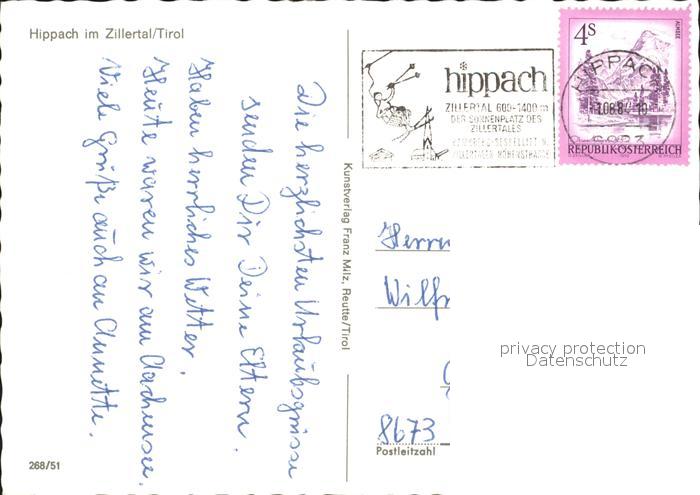 Hippach im Zillertal/Tirol
Die herzlichsten Urlaubsgrüsse
senden Dir Deine Eltern.
Haben herrliches Wetter.
Heute waren wir am Aachensee.
Viele Grüße auch an Annette.
268/51
Kunstverlag Franz Milz, Reutte/Tirol
hippach
ZILLERTAL 600-1400 m
DER SONNENPLATZ DES
ZILLERTALES
ZILLERTALER HÖHENSTRASSE
HIPPACH
4S
ALMSEE
REPUBLIK ÖSTERREICH
Herrn
Wilfr
8673
Postleitzahl
privacy protection
Datenschutz